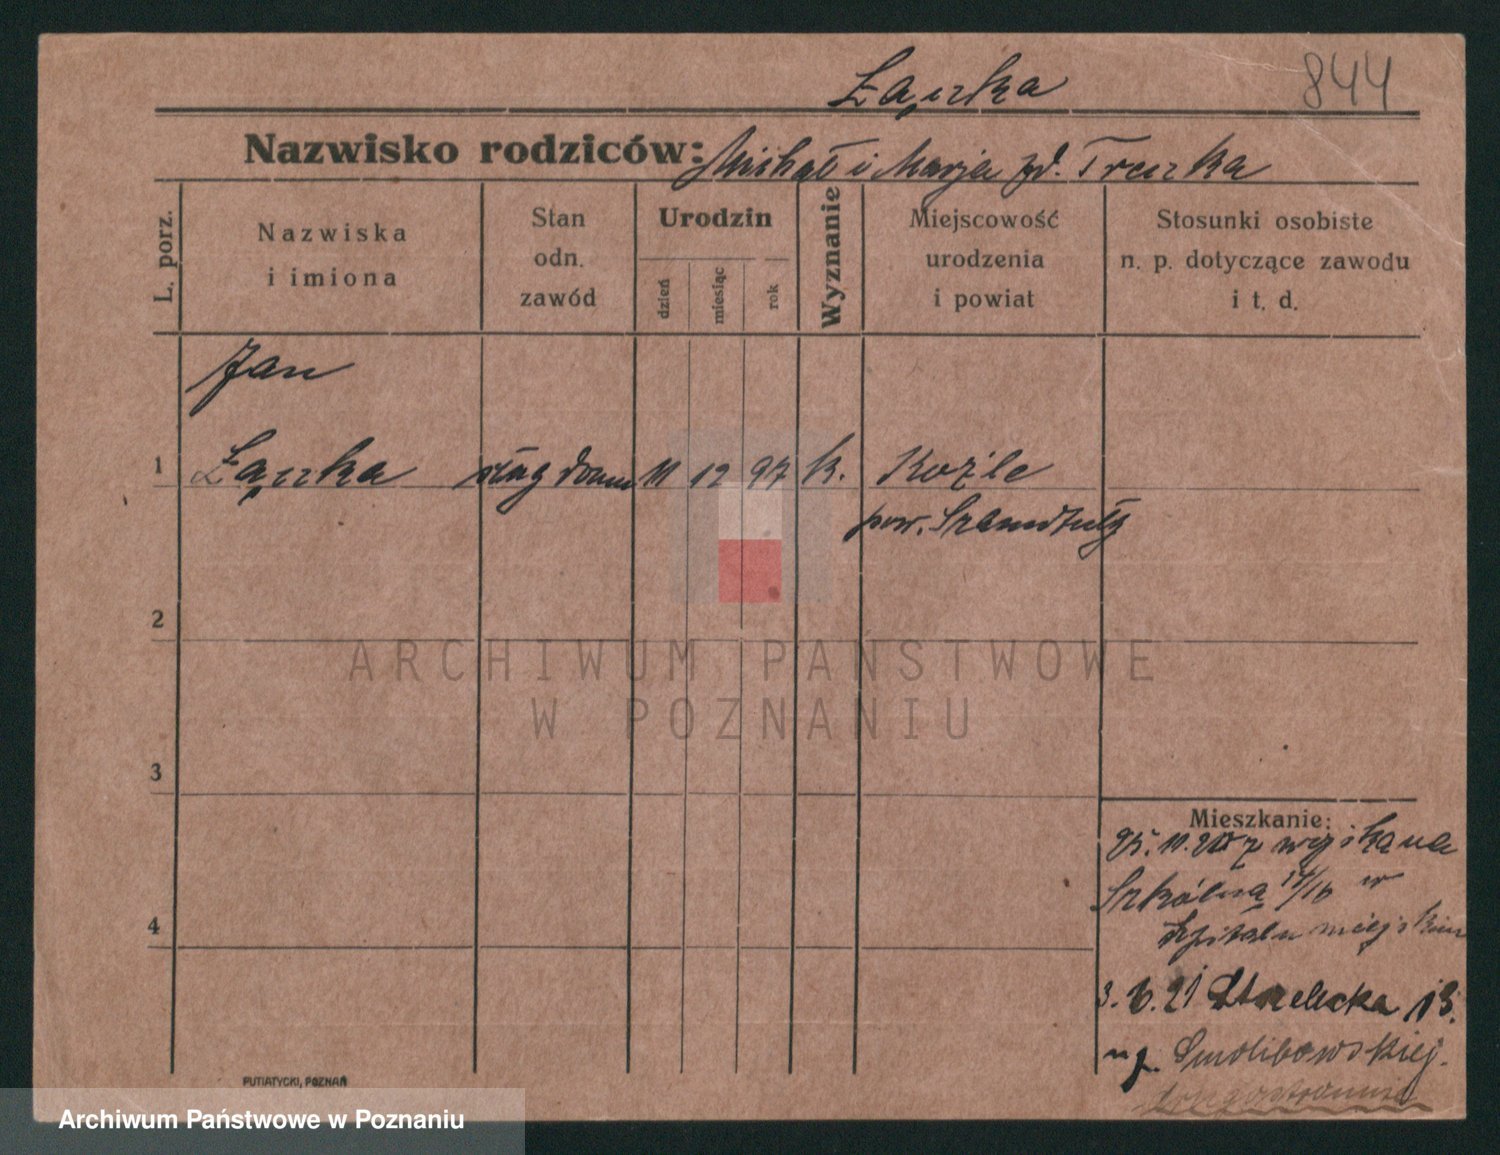 Łączka
844
Nazwisko rodziców: Michał i Marja zd. Treczka
L. porz.
Nazwiska
i imiona
Stan
odn.
zawód
Urodzin
dzień
miesiąc
rok
Wyznanie
Miejscowość
urodzenia
i powiat
Stosunki osobiste
n. p. dotyczące zawodu
i t. d.
Jan
1 Łączka służ domu 11 12 97 k. Koźle
pow. Szamotuły
2
ARCHIWUM PAŃSTWOWE
W POZNANIU
3
Mieszkanie:
25.11.20 z wojska na
Szkólną 14/16 w
szpitalu miejskim
4
3.6.21 Strzelecka 13.
Smolibowskiej.
PUTIATYCKI, POZNAŃ
Archiwum Państwowe w Poznaniu